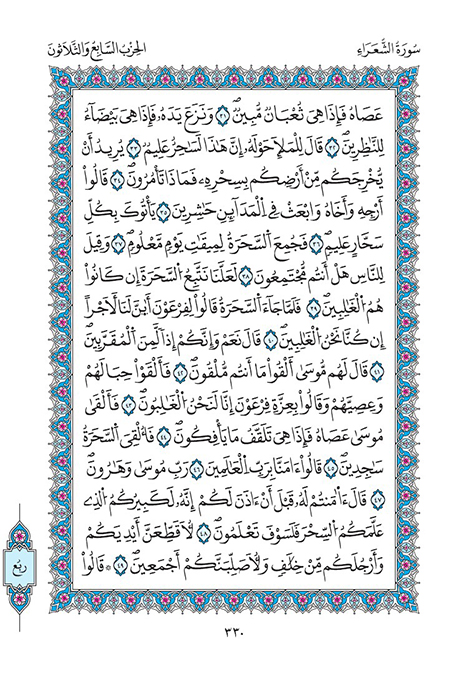 سُورَةُ الشُّعَرَاءِ
الحِزْبُ السَّابِعُ وَالثَّلَاثُونَ
عَصَاهُ فَإِذَا هِيَ ثُعْبَانٌ مُّبِينٌ ۝٣١ وَنَزَعَ يَدَهُۥ فَإِذَا هِيَ بَيْضَآءُ
لِلنَّٰظِرِينَ ۝٣٢ قَالَ لِلْمَلَإِ حَوْلَهُۥٓ إِنَّ هَٰذَا لَسَٰحِرٌ عَلِيمٌ ۝٣٣ يُرِيدُ أَنْ
يُخْرِجَكُم مِّنْ أَرْضِكُم بِسِحْرِهِۦ فَمَاذَا تَأْمُرُونَ ۝٣٤ قَالُوٓا۟
أَرْجِهِ وَأَخَاهُ وَابْعَثْ فِي الْمَدَآئِنِ حَٰشِرِينَ ۝٣٥ يَأْتُوكَ بِكُلِّ
سَحَّارٍ عَلِيمٍ ۝٣٦ فَجُمِعَ السَّحَرَةُ لِمِيقَٰتِ يَوْمٍ مَّعْلُومٍ ۝٣٧ وَقِيلَ
لِلنَّاسِ هَلْ أَنتُم مُّجْتَمِعُونَ ۝٣٨ لَعَلَّنَا نَتَّبِعُ السَّحَرَةَ إِن كَانُوا۟
هُمُ الْغَٰلِبِينَ ۝٣٩ فَلَمَّا جَآءَ السَّحَرَةُ قَالُوا۟ لِفِرْعَوْنَ أَىِٕنَّ لَنَا لَأَجْرًا
إِن كُنَّا نَحْنُ الْغَٰلِبِينَ ۝٤٠ قَالَ نَعَمْ وَإِنَّكُمْ إِذًا لَّمِنَ الْمُقَرَّبِينَ
۝٤١ قَالَ لَهُم مُّوسَىٰٓ أَلْقُوا۟ مَآ أَنتُم مُّلْقُونَ ۝٤٢ فَأَلْقَوْا۟ حِبَالَهُمْ
وَعِصِيَّهُمْ وَقَالُوا۟ بِعِزَّةِ فِرْعَوْنَ إِنَّا لَنَحْنُ الْغَٰلِبُونَ ۝٤٣ فَأَلْقَىٰ
مُوسَىٰ عَصَاهُ فَإِذَا هِيَ تَلَقَّفُ مَا يَأْفِكُونَ ۝٤٤ فَأُلْقِيَ السَّحَرَةُ
سَٰجِدِينَ ۝٤٥ قَالُوٓا۟ ءَامَنَّا بِرَبِّ الْعَٰلَمِينَ ۝٤٦ رَبِّ مُوسَىٰ وَهَٰرُونَ
۝٤٧ قَالَ ءَا۬مَنتُمْ لَهُۥ قَبْلَ أَنْ ءَاذَنَ لَكُمْ إِنَّهُۥ لَكَبِيرُكُمُ الَّذِي
عَلَّمَكُمُ السِّحْرَ فَلَسَوْفَ تَعْلَمُونَ ۝٤٨ لَأُقَطِّعَنَّ أَيْدِيَكُمْ
وَأَرْجُلَكُم مِّنْ خِلَٰفٍ وَلَأُصَلِّبَنَّكُمْ أَجْمَعِينَ ۝٤٩ ۞ قَالُوا۟
رُبُع
٣٣٠